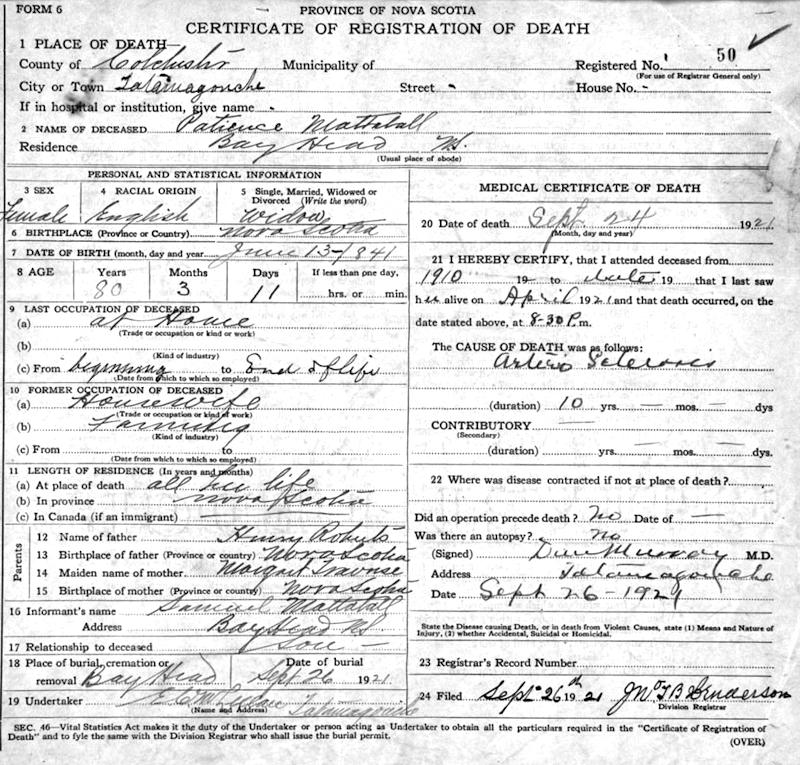 FORM 6
PROVINCE OF NOVA SCOTIA
CERTIFICATE OF REGISTRATION OF DEATH
1 PLACE OF DEATH
County of Colchester Municipality of Registered No. 50
(For use of Registrar General only)
City or Town Tatamagouche Street - House No. -
If in hospital or institution, give name -
2 NAME OF DECEASED Patience Mattatall
Residence Bay Head NS.
(Usual place of abode)
PERSONAL AND STATISTICAL INFORMATION
3 SEX 4 RACIAL ORIGIN 5 Single, Married, Widowed or Divorced (Write the word)
Female English Widow
6 BIRTHPLACE (Province or Country) Nova Scotia
7 DATE OF BIRTH (month, day and year) June 13-1841
8 AGE Years Months Days If less than one day,
80 3 11 hrs. or min.
9 LAST OCCUPATION OF DECEASED
(a) at Home
(Trade or occupation or kind or work)
(b)
(Kind of industry)
(c) From beginning to End of life
(Date from which to which so employed)
10 FORMER OCCUPATION OF DECEASED
(a) Housewife
(Trade or occupation or kind of work)
(b) Farming
(Kind of industry)
(c) From to
(Date from which to which so employed)
11 LENGTH OF RESIDENCE (In years and months)
(a) At place of death all her life
(b) In province Nova Scotia
(c) In Canada (if an immigrant)
Parents
12 Name of father Henry Roberts
13 Birthplace of father (Province or country) Nova Scotia
14 Maiden name of mother Margret
15 Birthplace of mother (Province or country) Nova Scotia
16 Informant's name Samuel Mattatall
Address Bay Head NS
17 Relationship to deceased Son -
18 Place of burial, cremation or removal Bay Head Date of burial Sept 26 1921
19 Undertaker Tatamagouche
(Name and Address)
MEDICAL CERTIFICATE OF DEATH
20 Date of death Sept. 24 1921
(Month, day and year)
21 I HEREBY CERTIFY, that I attended deceased from
1910 19 to date 19 that I last saw
her alive on April 1921 and that death occurred, on the
date stated above, at 8-30 P.m.
The CAUSE OF DEATH was as follows:
Arterio Sclerosis
(duration) 10 yrs. — mos. — dys
CONTRIBUTORY —
(Secondary)
(duration) — yrs. — mos. — dys.
22 Where was disease contracted if not at place of death?
Did an operation precede death? no Date of —
Was there an autopsy? no
(Signed) Dan Murray M.D.
Address Tatamagouche
Date Sept 26-1921
State the Disease causing Death, or in death from Violent Causes, state (1) Means and Nature of
Injury, (2) whether Accidental, Suicidal or Homicidal.
23 Registrar's Record Number
24 Filed Sept 26th 1921 Jno. T B Henderson
Division Registrar
SEC. 46—Vital Statistics Act makes it the duty of the Undertaker or person acting as Undertaker to obtain all the particulars required in the "Certificate of Registration of
Death" and to fyle the same with the Division Registrar who shall issue the burial permit.
(OVER)